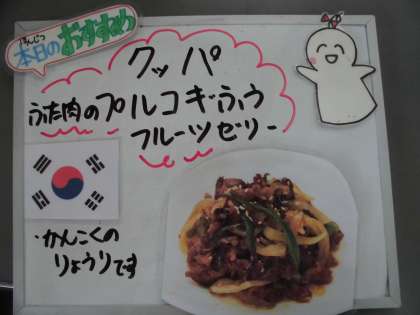 ほんじつ
本日のおすすめ
クッパ
ぶた肉のプルコギふう
フルーツゼリー
・かんこくの
りょうりです